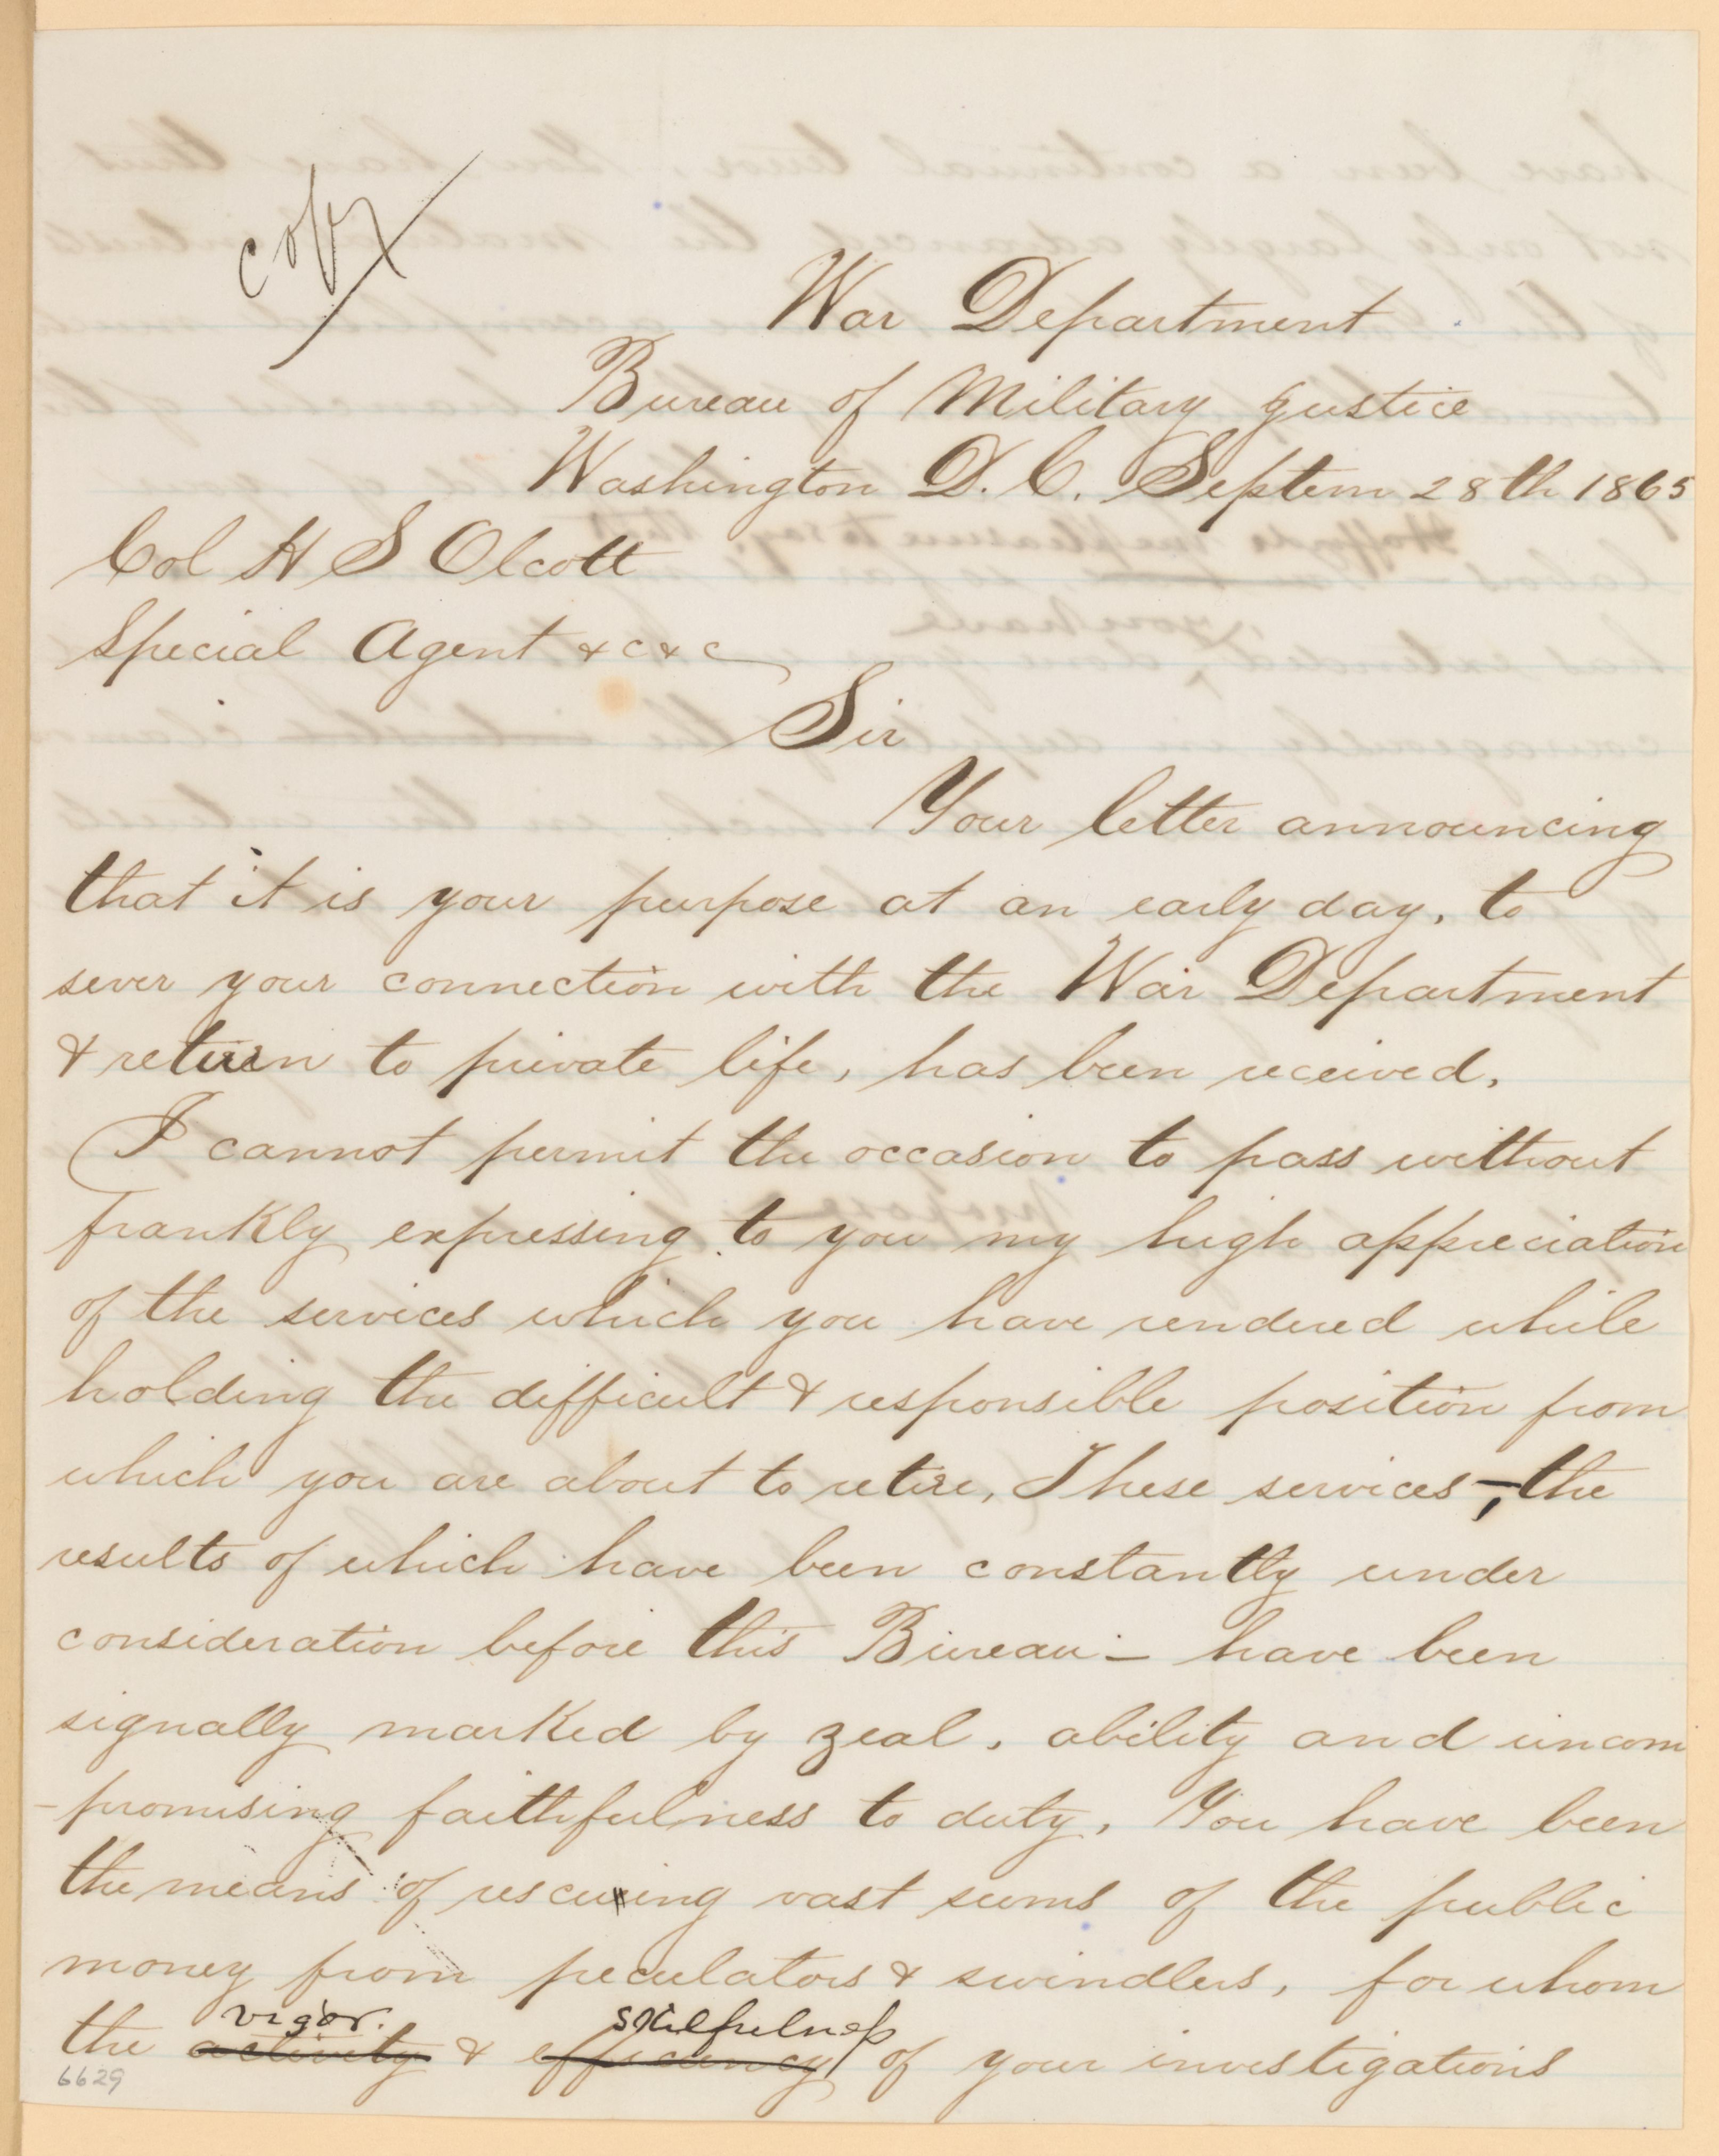 copy
War Department
Bureau of Military Justice
Washington D. C. Septem 28th 1865
Col H S Olcott
Special Agent &c &c
Sir
Your letter announcing
that it is your purpose at an early day, to
sever your connection with the War Department
& return to private life, has been received.
I cannot permit the occasion to pass without
frankly expressing to you my high appreciation
of the services which you have rendered while
holding the difficult & responsible position from
which you are about to retire. These services –, the
results of which have been constantly under
consideration before this Bureau – have been
signally marked by zeal, ability and uncom
-promising faithfulness to duty. You have been
the means of rescuing vast sums of the public
money from peculators & swindlers, for whom
vigor. skilfulness
the activity & efficiency of your investigations
6629